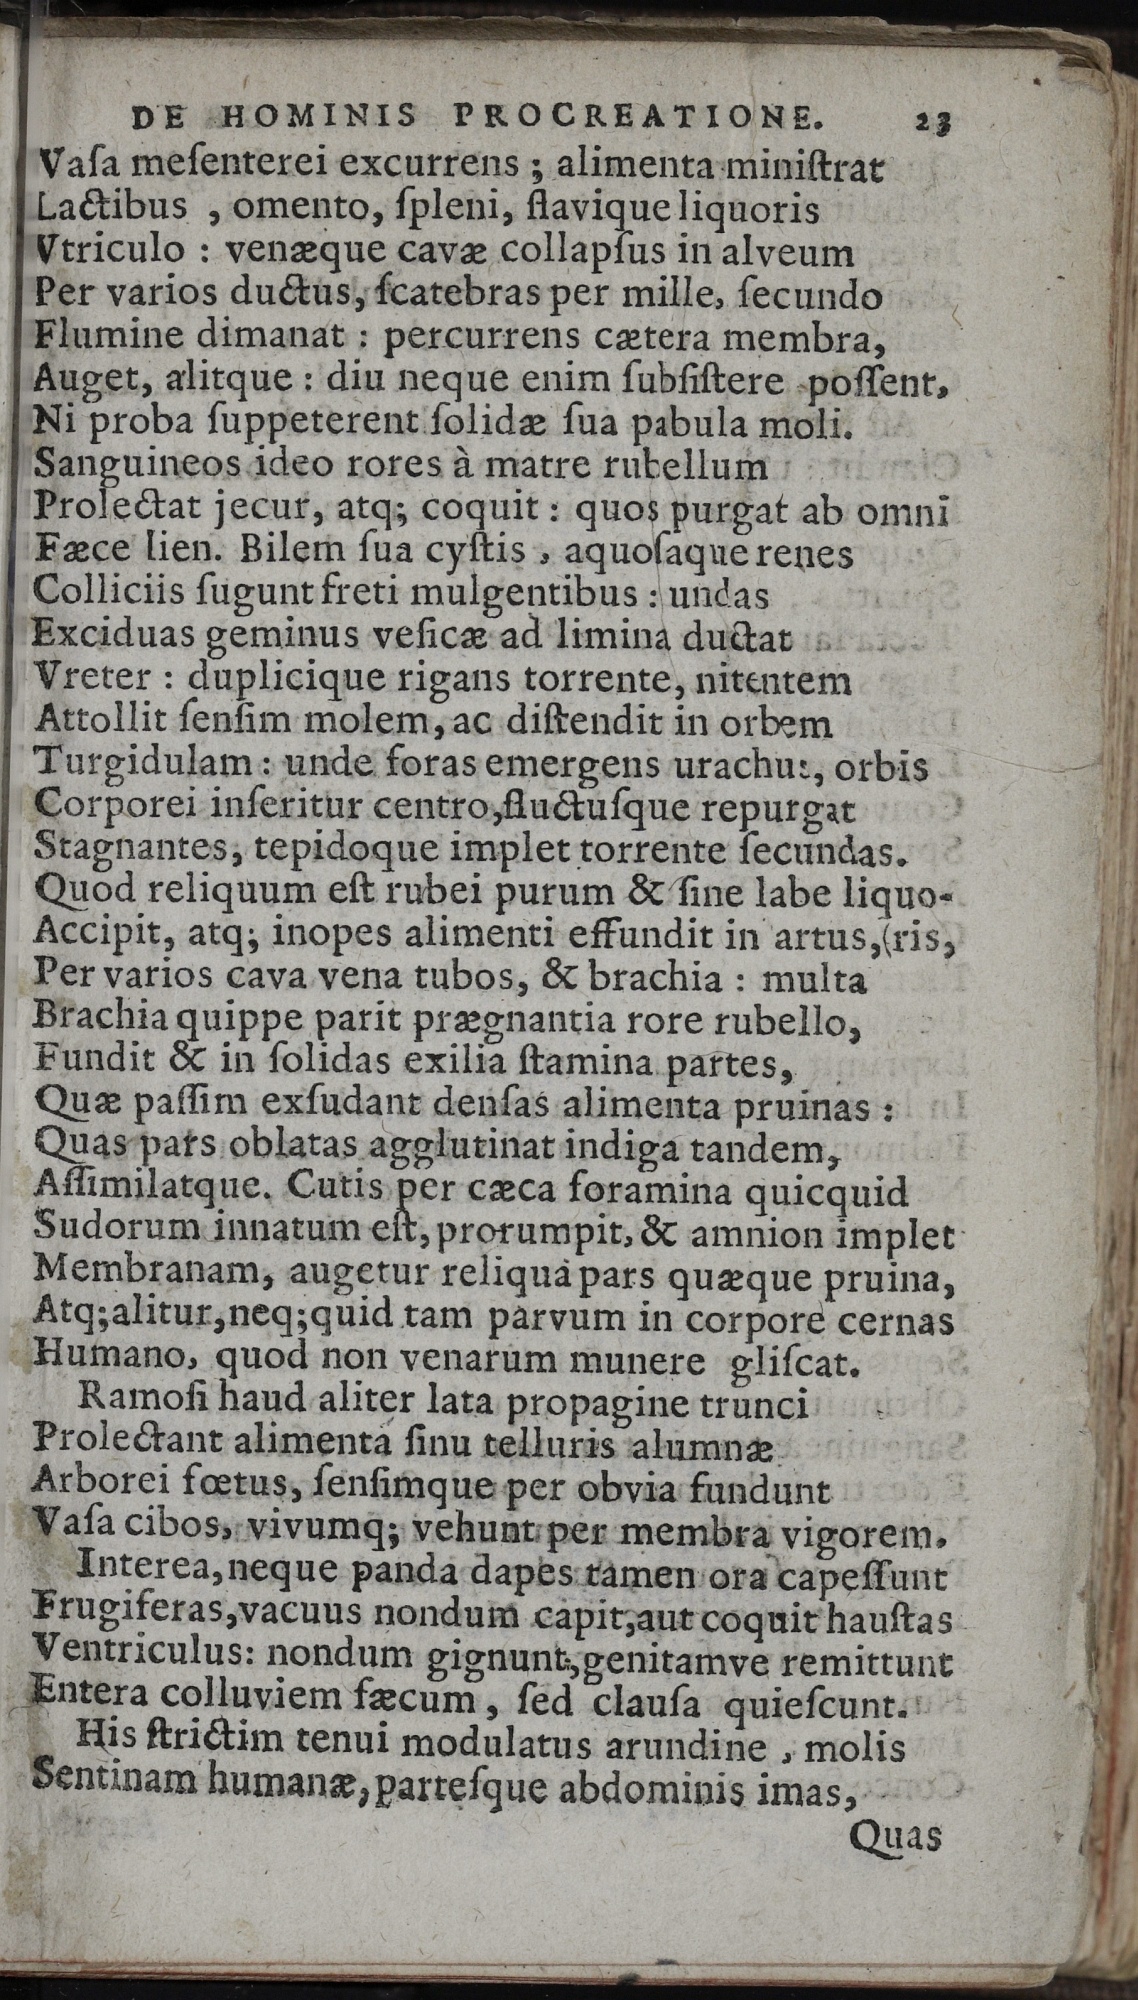 DE HOMINIS PROCREATIONE. 23
Vaſa meſenterei excurrens ; alimenta miniſtrat
Lactibus , omento, ſpleni, flavique liquoris
Vtriculo : venæque cavæ collapſus in alveum
Per varios ductus, ſcatebras per mille, ſecundo
Flumine dimanat : percurrens cætera membra,
Auget, alitque : diu neque enim ſubſiſtere poſſent,
Ni proba ſuppeterent ſolidæ ſua pabula moli.
Sanguineos ideo rores à matre rubellum
Prolectat jecur, atq; coquit : quos purgat ab omni
Fæce lien. Bilem ſua cyſtis , aquoſaque renes
Colliciis ſugunt freti mulgentibus : undas
Exciduas geminus veſicæ ad limina ductat
Vreter : duplicique rigans torrente, nitentem
Attollit ſenſim molem, ac diſtendit in orbem
Turgidulam : unde foras emergens urachus, orbis
Corporei inſeritur centro, fluctuſque repurgat
Stagnantes, tepidoque implet torrente ſecundas.
Quod reliquum eſt rubei purum & ſine labe liquo-
Accipit, atq; inopes alimenti effundit in artus, (ris,
Per varios cava vena tubos, & brachia : multa
Brachia quippe parit prægnantia rore rubello,
Fundit & in ſolidas exilia ſtamina partes,
Quæ paſſim exſudant denſas alimenta pruinas :
Quas pars oblatas agglutinat indiga tandem,
Aſſimilatque. Cutis per cæca foramina quicquid
Sudorum innatum eſt, prorumpit, & amnion implet
Membranam, augetur reliquâ pars quæque pruina,
Atq; alitur, neq; quid tam parvum in corpore cernas
Humano, quod non venarum munere gliſcat.
Ramoſi haud aliter lata propagine trunci
Prolectant alimenta ſinu telluris alumnæ
Arborei fœtus, ſenſimque per obvia fundunt
Vaſa cibos, vivumq; vehunt per membra vigorem.
Interea, neque panda dapes tamen ora capeſſunt
Frugiferas, vacuus nondum capit, aut coquit hauſtas
Ventriculus: nondum gignunt, genitamve remittunt
Entera colluviem fæcum , ſed clauſa quieſcunt.
His ſtrictim tenui modulatus arundine , molis
Sentinam humanæ, parteſque abdominis imas,
Quas